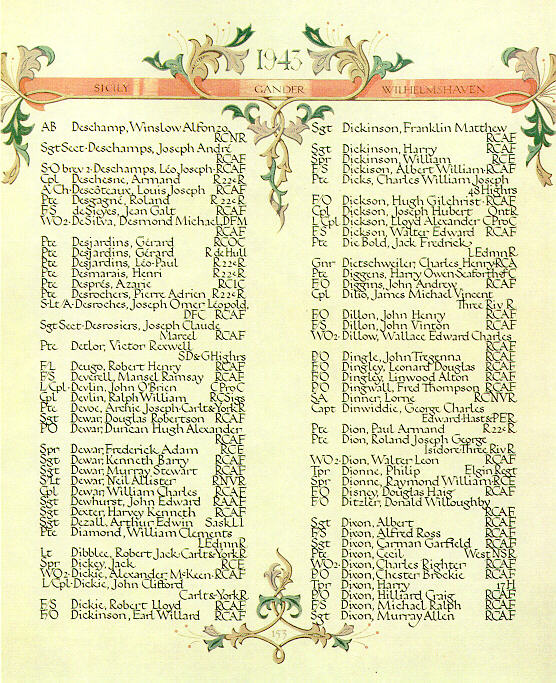 1943
SICILY GANDER WILHELMSHAVEN
AB Deschamp, Winslow Alfonzo
RCNR
Sgt Sect·Deschamps, Joseph André
RCAF
S·O brev 2·Deschamps, Léo Joseph·RCAF
Cpl Deschesne, Armand R22eR
A·Ch·Descôteaux, Louis Joseph RCAF
Pte Desgagné, Roland R22eR
FS deSieyes, Jean Galt RCAF
WO2·DeSilva, Desmond Michael, DFM
RCAF
Pte Desjardins, Gérard RCOC
Pte Desjardins, Gérard R de Hull
Pte Desjardins, Léo·Paul R22eR
Pte Desmarais, Henri R22eR
Pte Després, Azarie RCIC
Pte Desrochers, Pierre Adrien R22eR
S·Lt A·Desroches, Joseph Omer Léopold,
DFC RCAF
Sgt Sect·Desrosiers, Joseph Claude
Marcel RCAF
Pte Detlor, Victor Rexwell
SD&GHighrs
F/L Deugo, Robert Henry RCAF
FS Deverell, Mansel Ramsay RCAF
L/Cpl·Devlin, John O'Brien CProC
Cpl Devlin, Ralph William RCSigs
Pte Devoe, Archie Joseph·Carlt&YorkR
Sgt Dewar, Douglas Robertson RCAF
PO Dewar, Duncan Hugh Alexander
RCAF
Spr Dewar, Frederick Adam RCE
Sgt Dewar, Kenneth Barry RCAF
Sgt Dewar, Murray Stewart RCAF
S/Lt Dewar, Neil Allister RNVR
Cpl Dewar, William Charles RCAF
Sgt Dewhurst, John Edward RAAF
Sgt Dexter, Harvey Kenneth RCAF
Sgt Dezall, Arthur Edwin SaskLI
Pte Diamond, William Clements
LEdmnR
Lt Dibblee, Robert Jack·Carlt&YorkR
Spr Dickey, Jack RCE
WO2·Dickie, Alexander McKeen·RCAF
L/Cpl·Dickie, John Clifford
Carlt&YorkR
FS Dickie, Robert Lloyd RCAF
FO Dickinson, Earl Willard RCAF
Sgt Dickinson, Franklin Matthew
RCAF
Sgt Dickinson, Harry RCAF
Spr Dickinson, William RCE
FS Dickison, Albert William·RCAF
Pte Dicks, Charles William Joseph
48Highrs
F/O Dickson, Hugh Gilchrist·RCAF
Cpl Dickson, Joseph Hubert OntR
L/Cpl·Dickson, Lloyd Alexander CProC
FS Dickson, Walter Edward RCAF
Pte Die Bold, Jack Fredrick
LEdmnR
Gnr Dietschweiler, Charles Henry RCA
Pte Diggens, Harry Owen·SeaforthofC
FO Diggins, John Andrew RCAF
Cpl Dilio, James Michael Vincent
Three Riv R
FO Dillon, John Henry RCAF
FS Dillon, John Vinton RCAF
WO2·Dillow, Wallace Edward Charles
RCAF
PO Dingle, John Tregenna RCAF
FO Dingley, Leonard Douglas RCAF
FO Dingley, Linwood Alton RCAF
PO Dingwall, Fred Thompson RCAF
SA Dinner, Lorne RCNVR
Capt Dinwiddie, George Charles
Edward·Hast&PER
Pte Dion, Paul Armand R22eR
Pte Dion, Roland Joseph George
Isidore·Three Riv R
WO2·Dion, Walter Leon RCAF
Tpr Dionne, Philip Elgin Regt
Spr Dionne, Raymond William·RCE
FO Disney, Douglas Haig RCAF
FO Ditzler, Donald Willoughby
RCAF
Sgt Dixon, Albert RCAF
FS Dixon, Alfred Ross RCAF
Sgt Dixon, Carman Garfield RCAF
Pte Dixon, Cecil WestNSR
WO2·Dixon, Charles Righter RCAF
PO Dixon, Chester Brockie RCAF
Tpr Dixon, Harry 17H
PO Dixon, Hilliard Graig RCAF
FS Dixon, Michael Ralph RCAF
Sgt Dixon, Murray Allen RCAF
153